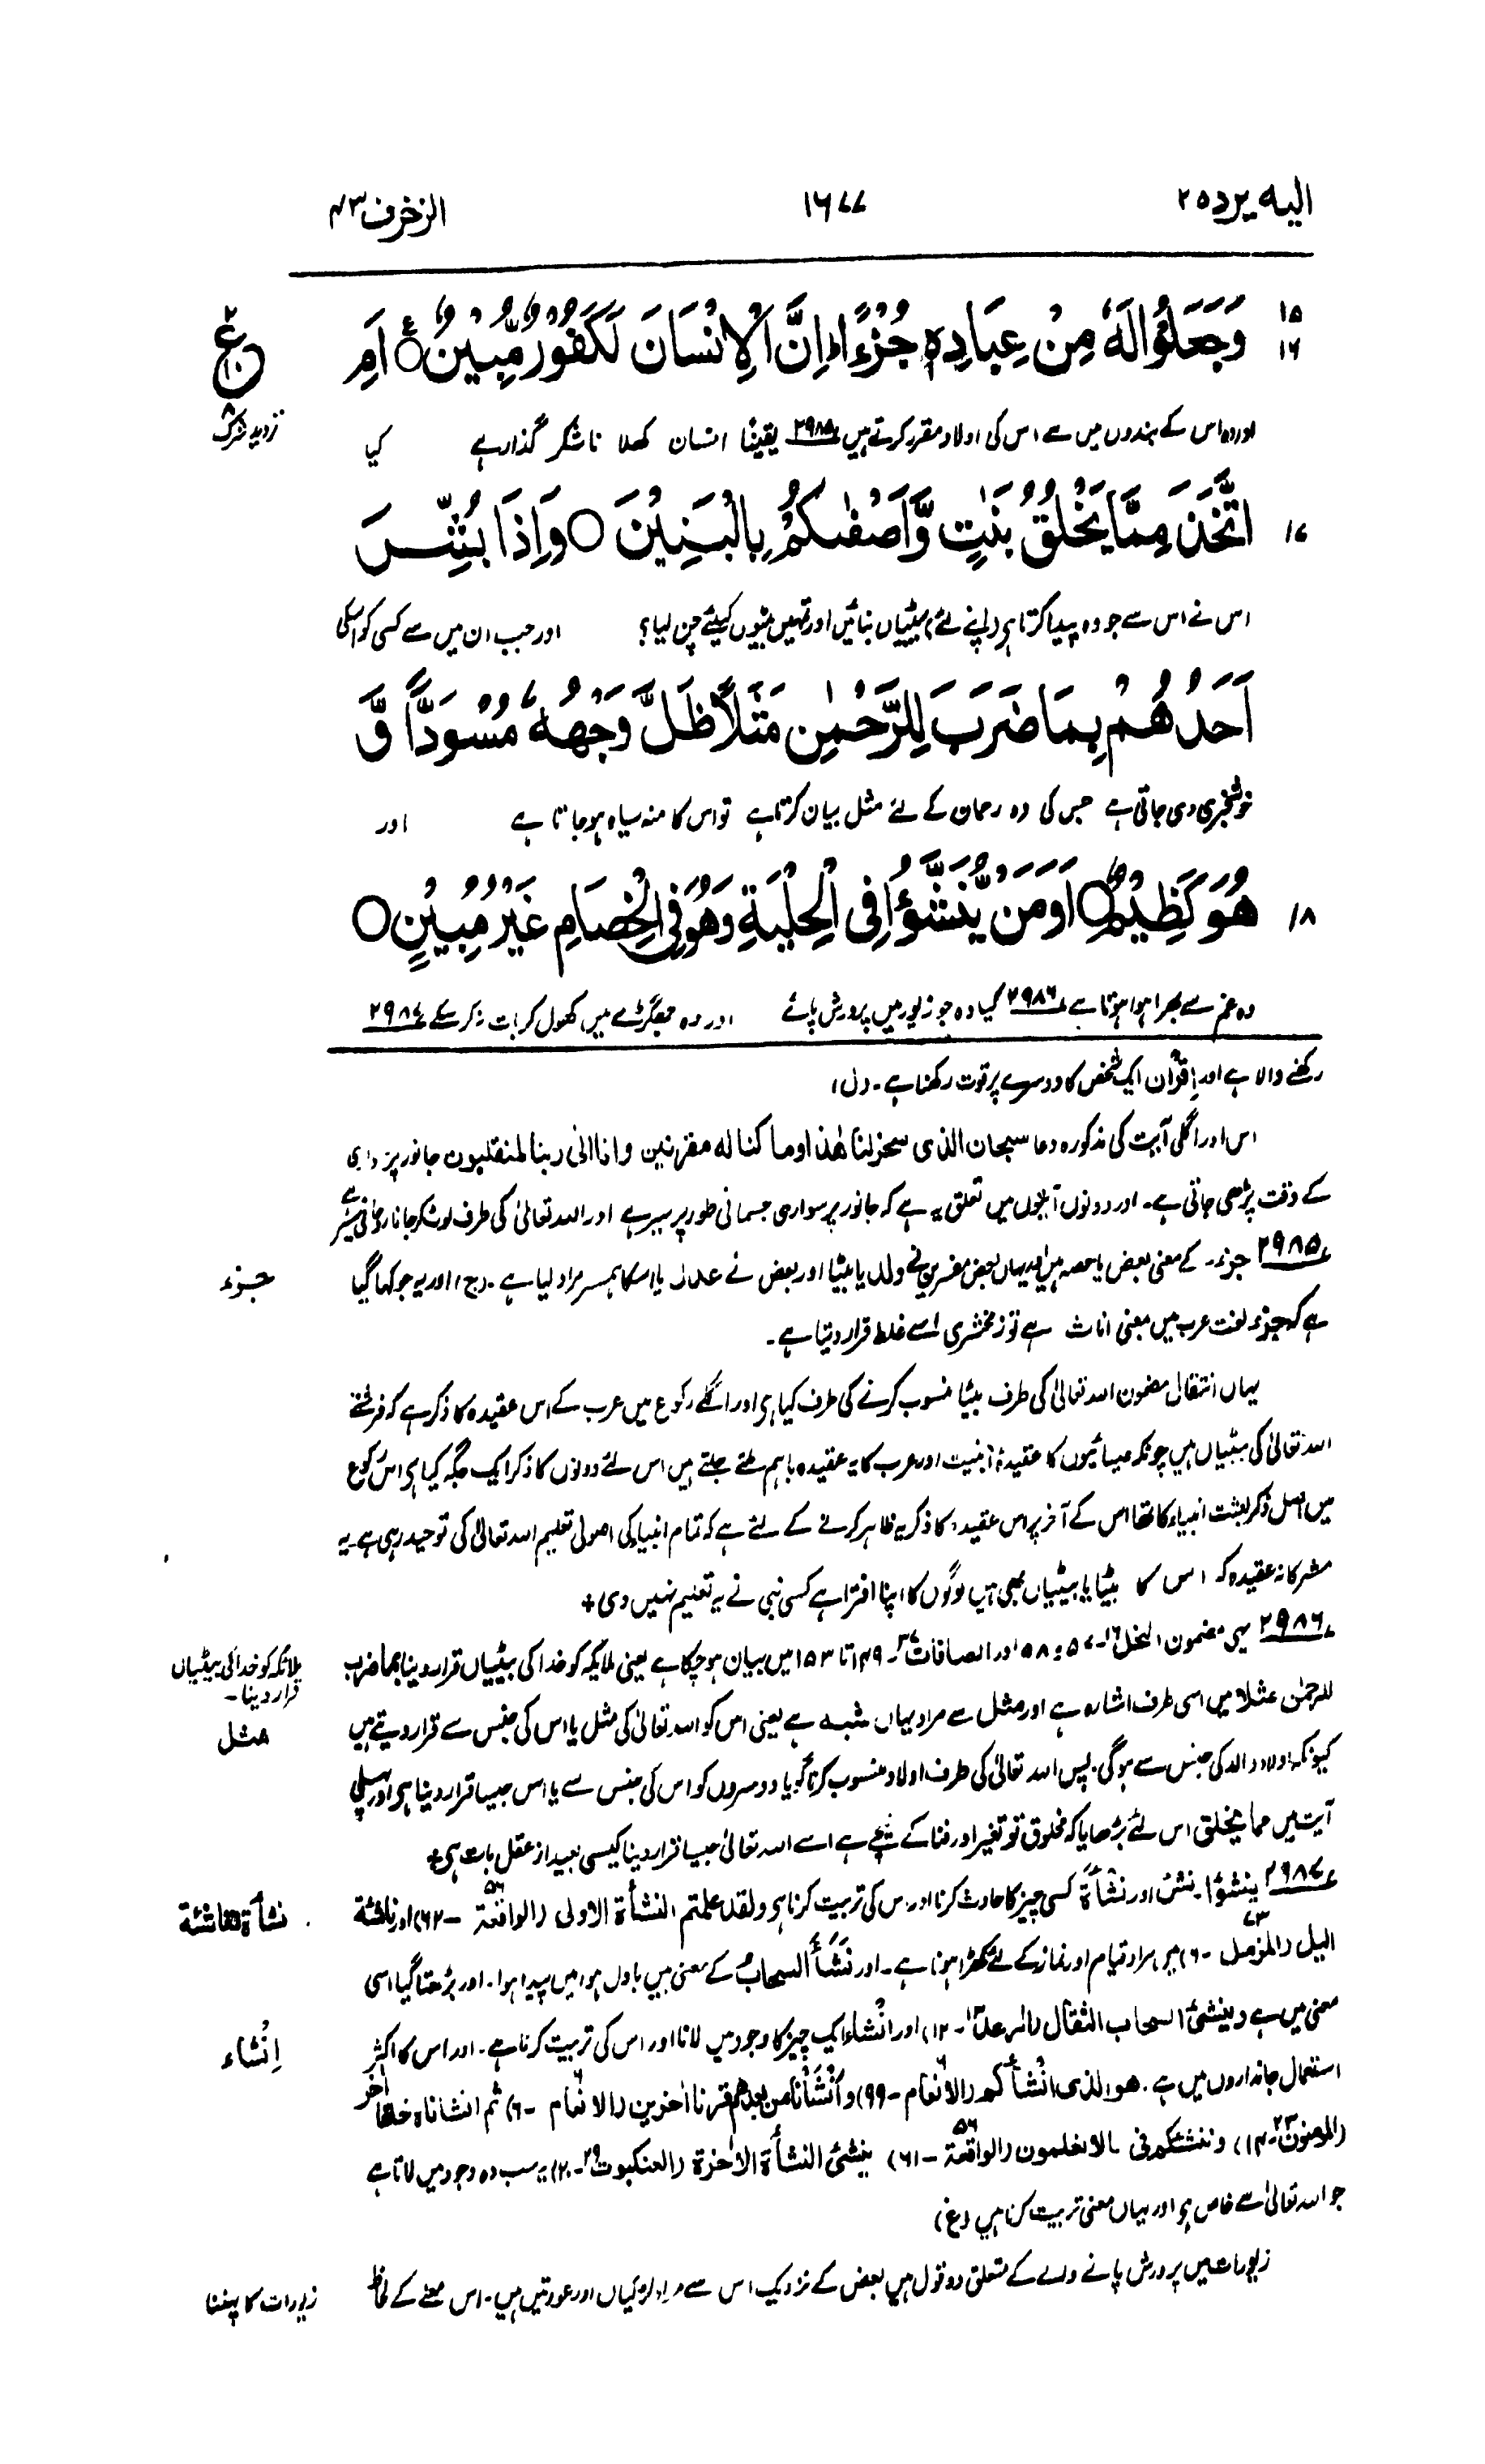 الیہ یرد ۲۵
۱۶۷۷
الزخرف ۴۳
۱۵
۱۶
وَجَعَلُوْا لَهٗ مِنْ عِبَادِهٖ جُزْءًا ؕ اِنَّ الْاِنْسَانَ لَكَفُوْرٌ مُّبِيْنٌ ۝ؕ اَمِ
ع
تردید شرک
اور وہ اس کے بندوں میں سے اس کی اولاد مقرر کرتے ہیں ۲۹۸۵ یقینًا انسان کھلا ناشکر گذار ہے کیا
۱۷
اتَّخَذَ مِمَّا يَخْلُقُ بَنٰتٍ وَّاَصْفٰىكُمْ بِالْبَنِيْنَ ۝ وَاِذَا بُشِّرَ
اس نے اس سے جو وہ پیدا کرتا ہے (اپنے لئے) بیٹیاں بنائیں اور تمہیں بیٹوں کیلئے چن لیا؟ اور جب ان میں سے کسی کو اسکی
اَحَدُهُمْ بِمَا ضَرَبَ لِلرَّحْمٰنِ مَثَلًا ظَلَّ وَجْهُهٗ مُسْوَدًّا وَّ
خوشخبری دی جاتی ہے جس کی وہ رحمان کے لئے مثل بیان کرتا ہے تو اس کا منہ سیاہ ہو جاتا ہے اور
۱۸
هُوَ كَظِيْمٌ ۝ اَوَمَنْ يُّنَشَّؤُا فِى الْحِلْيَةِ وَهُوَ فِى الْخِصَامِ غَيْرُ مُبِيْنٍ ۝
وہ غم سے بھرا ہوا ہوتا ہے ۲۹۸۶ کیا وہ جو زیور میں پرورش پائے اور وہ جھگڑے میں کھول کر بات نہ کر سکے ۲۹۸۷
رکھنے والا ہے اور اِقْرَان ایک شخص کا دوسرے پر قوت رکھنا ہے۔ (ل)
اس اور اگلی آیت کی مذکورہ دعا سبحان الذی سخر لنا ھٰذا وما کنا لہ مقرنین وانا الی ربنا لمنقلبون جانور پر
کے وقت پڑھی جاتی ہے۔ اور دونوں آیتوں میں تعلق یہ ہے کہ جانور پر سواری جسمانی طور پر سیر ہے اور اللہ تعالیٰ کی طرف لوٹ کر جانا روحانی سیر ہے
۲۹۸۵ جزء۔ کے معنی بعض یا حصہ ہیں اور یہاں بعض مفسرین نے ولد یا بیٹا اور بعض نے عدل یا اسکا ہمسر مراد لیا ہے۔ (ج) اور یہ جو کہا گیا
جزء
ہے کہ جزء لغت عرب میں بمعنی اناث ہے تو زمخشری اسے غلط قرار دیتا ہے۔
یہاں انتقال مضمون اللہ تعالیٰ کی طرف بیٹا منسوب کرنے کی طرف کیا ہے اور اگلے رکوع میں عرب کے اس عقیدہ کا ذکر ہے کہ فرشتے
اللہ تعالیٰ کی بیٹیاں ہیں چونکہ عیسائیوں کا عقیدۂ ابنیت اور عرب کا یہ عقیدہ باہم ملتے جلتے ہیں اس لئے دونوں کا ذکر ایک جگہ کیا ہے اس رکوع
میں اصل ذکر بعثت انبیاء کا تھا اس کے آخر پر اس عقیدہ کا ذکر یہ ظاہر کرنے کے لئے ہے کہ تمام انبیاء کی اصولی تعلیم اللہ تعالیٰ کی توحید رہی ہے یہ
مشرکانہ عقیدہ کہ اس کا بیٹا یا بیٹیاں بھی ہیں لوگوں کا اپنا افترا ہے کسی نبی نے یہ تعلیم نہیں دی +
۲۹۸۶ یہی مضمون النحل ۱۶-۵۷ و ۵۸ اور الصافات ۳۷-۱۴۹ تا ۱۵۳ میں بیان ہو چکا ہے یعنی ملائکہ کو خدا کی بیٹیاں قرار دینا بما ضرب
ملائکہ کو خدا کی بیٹیاں
قرار دینا۔
للرحمٰن مثلا میں اسی طرف اشارہ ہے اور مثل سے مراد یہاں شبہ ہے یعنی اس کو اللہ تعالیٰ کی مثل یا اس کی جنس سے قرار دیتے ہیں
مثل
کیونکہ اولاد والد کی جنس سے ہوگی۔ پس اللہ تعالیٰ کی طرف اولاد منسوب کرنا گویا دوسروں کو اس کی جنس سے یا اس جیسا قرار دینا ہے اور پہلی
آیت میں مما یخلق اس لئے بڑھایا کہ مخلوق تو تغیر اور فنا کے نیچے ہے اسے اللہ تعالیٰ جیسا قرار دینا کیسی بعید از عقل بات ہے +
۲۹۸۷ ینشؤا۔ نشئ اور نشأۃ کسی چیز کا حادث کرنا اور اس کی تربیت کرنا ہے ولقد علمتم النشأۃ الاولی (الواقعۃ ۵۶-۶۲) اور ناشئۃ
نشأۃ ناشئۃ
الیل (المزمل ۷۳-۶) میں مراد قیام اور نماز کے لئے کھڑا ہونا ہے۔ اور نَشَأَ السحابُ کے معنی ہیں بادل ہوا میں پیدا ہوا۔ اور بڑھتا گیا اسی
معنی میں ہے وینشئ السحاب الثقال (الرعد ۱۳-۱۲) اور انشاء ایک چیز کا وجود میں لانا اور اس کی تربیت کرنا ہے۔ اور اس کا اکثر
اِنْشاء
استعمال جانداروں میں ہے۔ ھو الذی انشأکم (الانعام ۶-۹۹) و أنشأنا من بعدھم قرنا اٰخرین (الانعام ۶-۶) ثم انشاناہ خلقا اٰخر
(المومنون ۲۳-۱۴) وننشئکم فی مالا تعلمون (الواقعۃ ۵۶-۶۱) ینشئ النشأۃ الاٰخرۃ (العنکبوت ۲۹-۲۰) یہ سب وہ وجود میں لانا ہے
جو اللہ تعالیٰ سے خاص ہے اور یہاں معنی تربیت کرنا ہیں (غ)
زیورات میں پرورش پانے والے کے متعلق دو قول ہیں بعض کے نزدیک اس سے مراد لڑکیاں اور عورتیں ہیں۔ اس معنے کے لحاظ
زیورات کا پہننا